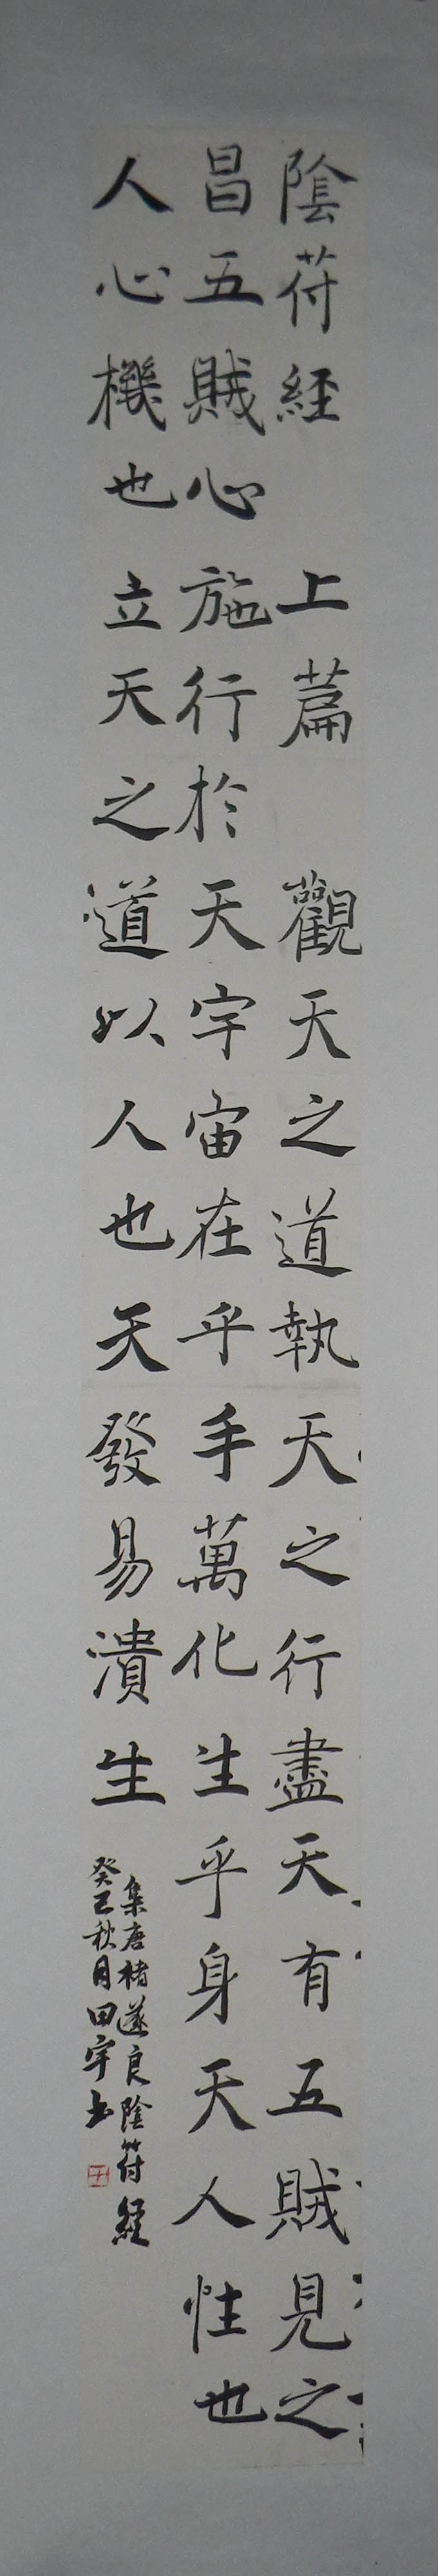 陰苻經 上篇 觀天之道執天之行盡天有五賊見之
昌五賊心施行於天宇宙在乎手萬化生乎身天人性也
人心機也立天之道以人也天發易潰生
集唐褚遂良陰符經
癸巳秋月田宇書